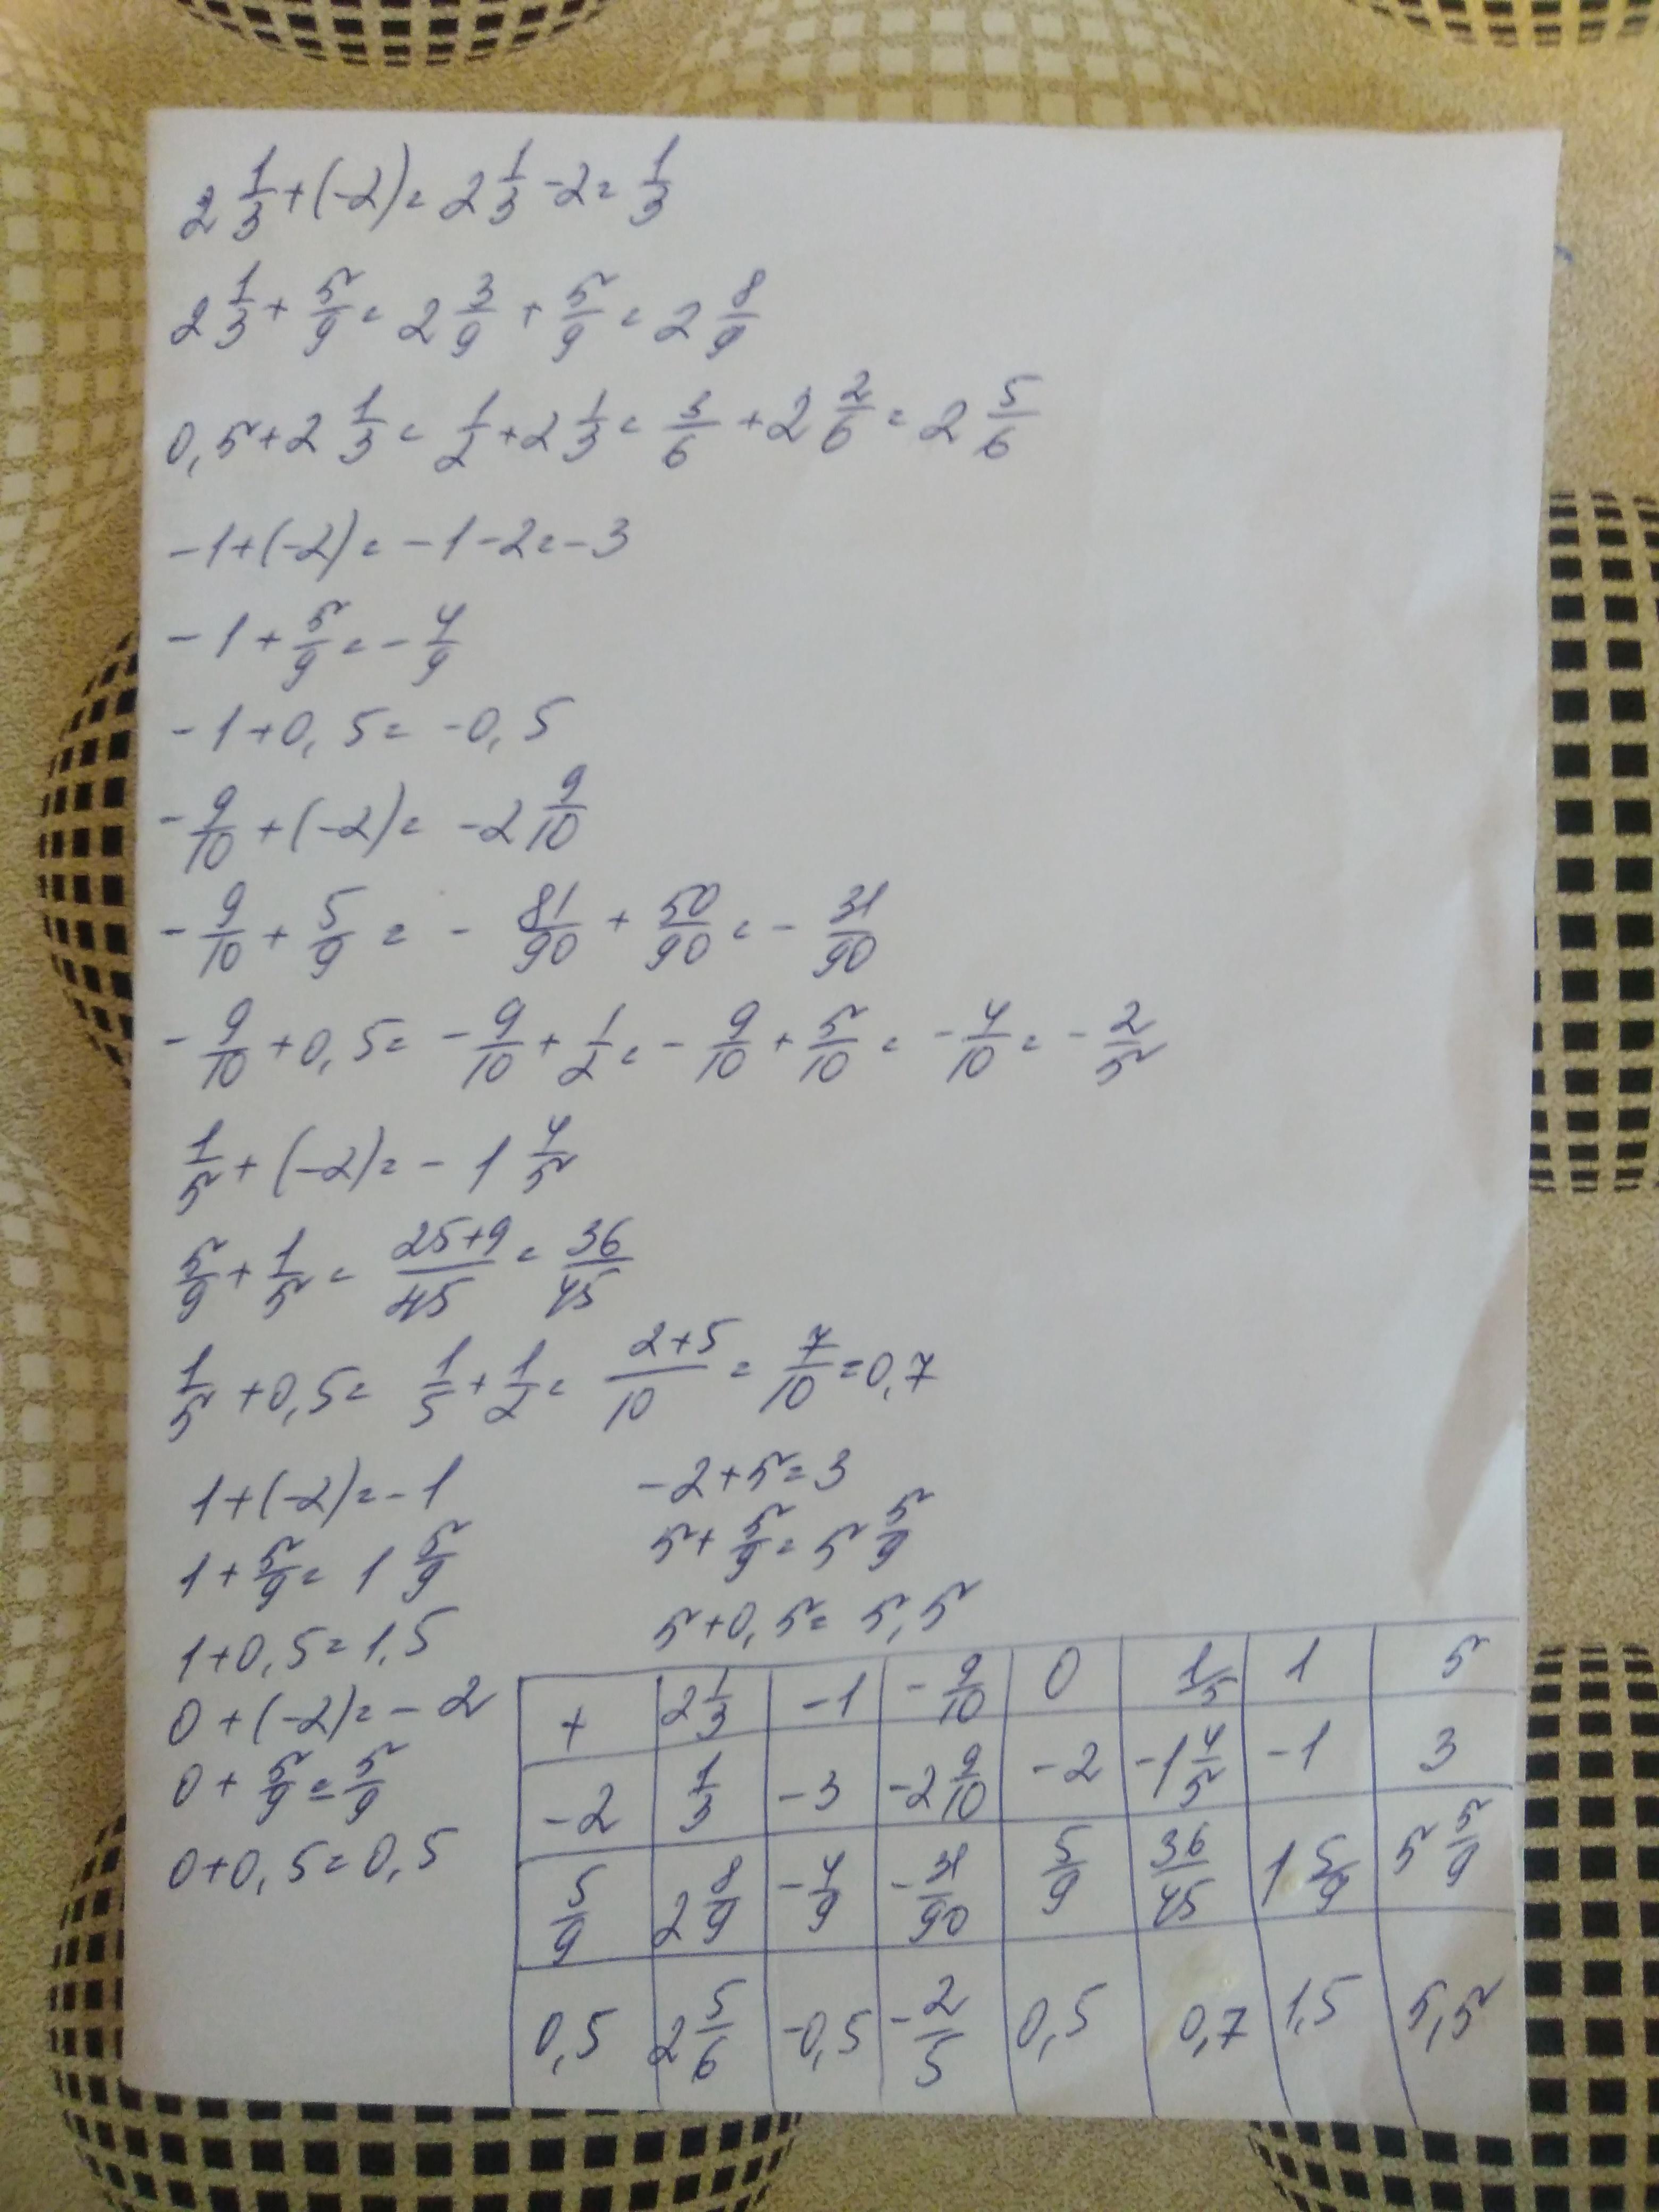 2 1/3 + (-2) = 2 1/3 - 2 = 1/3
2 1/3 + 5/9 = 2 3/9 + 5/9 = 2 8/9
0,5 + 2 1/3 = 1/2 + 2 1/3 = 3/6 + 2 2/6 = 2 5/6
-1 + (-2) = -1 - 2 = -3
-1 + 5/9 = -4/9
-1 + 0,5 = -0,5
-9/10 + (-2) = -2 9/10
-9/10 + 5/9 = -81/90 + 50/90 = -31/90
-9/10 + 0,5 = -9/10 + 1/2 = -9/10 + 5/10 = -4/10 = -2/5
1/5 + (-2) = -1 4/5
5/9 + 1/5 = (25+9)/45 = 36/45
1/5 + 0,5 = 1/5 + 1/2 = (2+5)/10 = 7/10 = 0,7
1 + (-2) = -1
1 + 5/9 = 1 5/9
1 + 0,5 = 1,5
0 + (-2) = -2
0 + 5/9 = 5/9
0 + 0,5 = 0,5
-2 + 5 = 3
5 + 5/9 = 5 5/9
5 + 0,5 = 5,5
+ 2 1/3 -1 -9/10 0 1/5 1 5
-2 1/3 -3 -2 9/10 -2 -1 4/5 -1 3
5/9 2 8/9 -4/9 -31/90 5/9 36/45 1 5/9 5 5/9
0,5 2 5/6 -0,5 -2/5 0,5 0,7 1,5 5,5